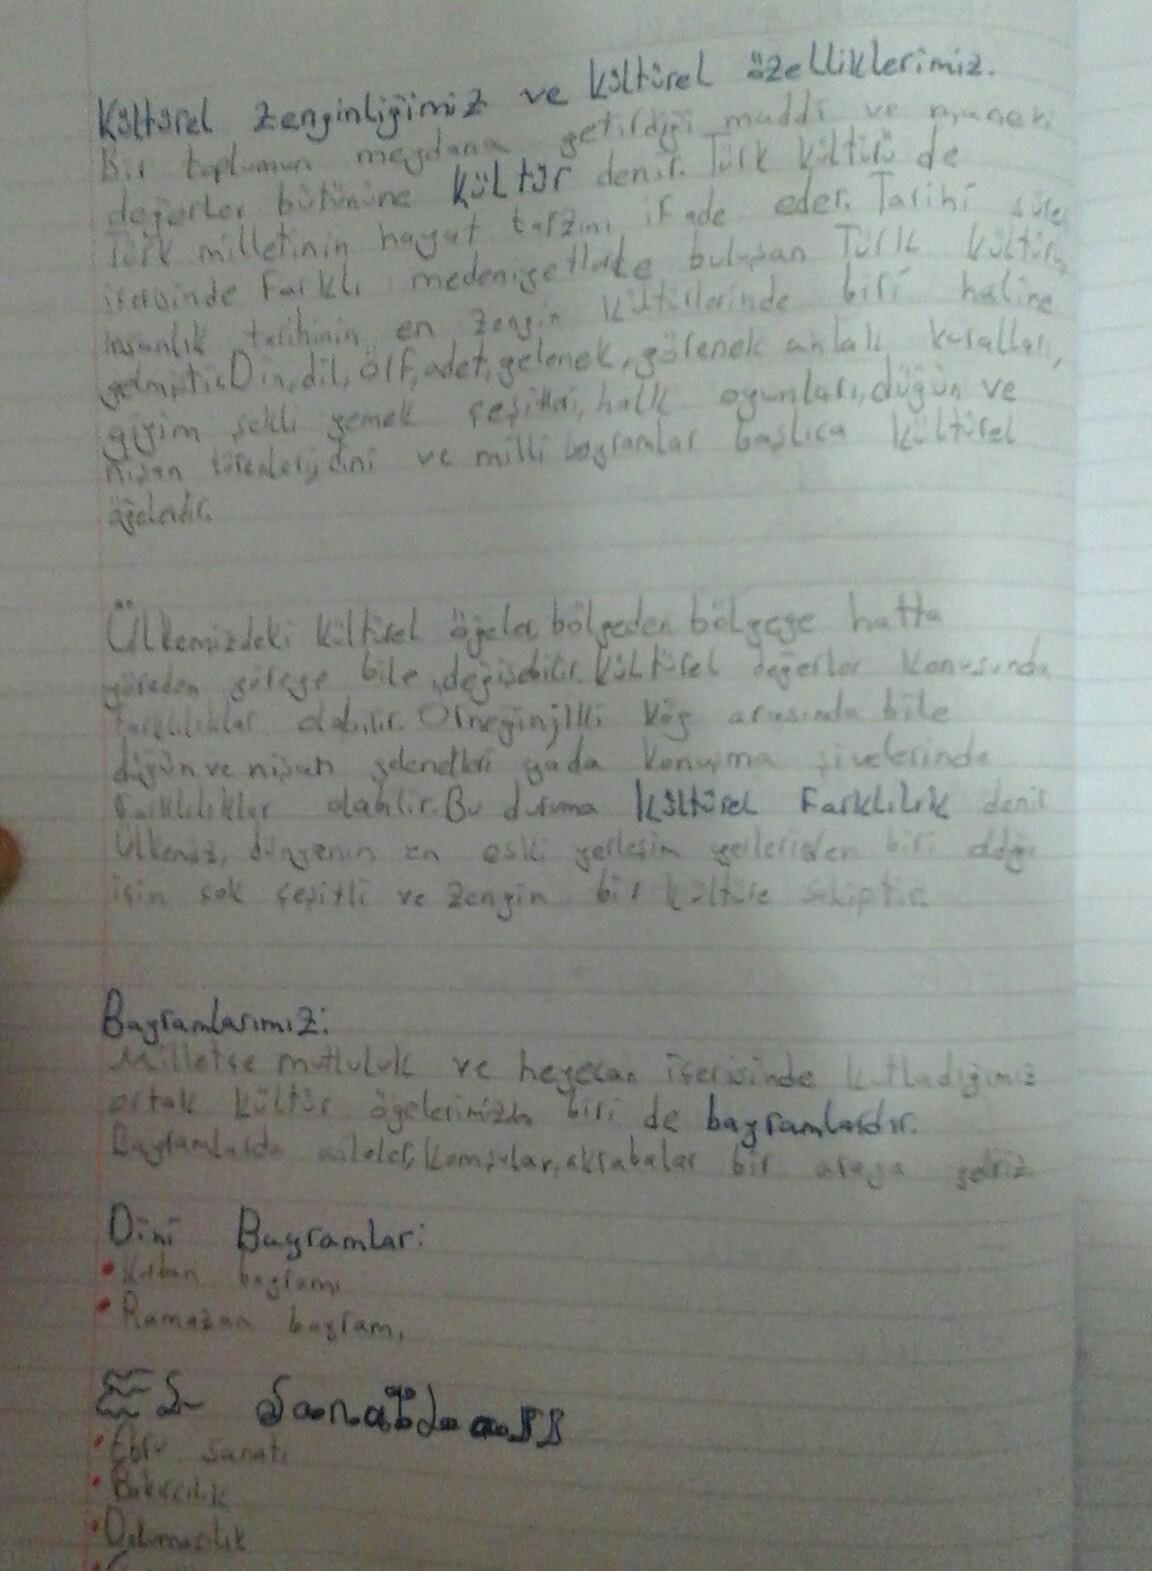 Kültürel zenginliğimiz ve kültürel özelliklerimiz.
Bir toplumun meydana getirdiği maddi ve manevi
değerler bütününe kültür denir. Türk kültürü de
Türk milletinin hayat tarzını ifade eder. Tarihi süreç
içersinde farklı medeniyetlerle buluşan Türk kültürü,
insanlık tarihinin en zengin kültürlerinde biri haline
gelmiştir. Din, dil, örf, adet, gelenek, görenek ahlak kuralları,
giyim şekli yemek çeşitleri, halk oyunları, düğün ve
nişan törenleri, dini ve milli bayramlar başlıca kültürel
ögelerdir.
Ülkemizdeki kültürel ögeler, bölgeden bölgeye hatta
yöreden yöreye bile değişebilir. Kültürel değerler konusunda
farklılıklar olabilir. Örneğin; İki köy arasında bile
düğün ve nişan gelenekleri yada konuşma şivelerinde
farklılıklar olabilir. Bu duruma kültürel farklılık denir
Ülkemiz, dünyanın en eski yerleşim yerlerinden biri olduğu
için çok çeşitli ve zengin bir kültüre sahiptir.
Bayramlarımız:
Milletçe mutluluk ve heyecan içerisinde kutladığımız
ortak kültür ögelerimizden biri de bayramlardır.
Bayramlarda aileler, komşular, akrabalar bir araya geliriz
Dini Bayramlar:
• Kurban bayramı
• Ramazan bayramı
El Sanatları
• Ebru sanatı
• Bakırcılık
• Dokumacılık